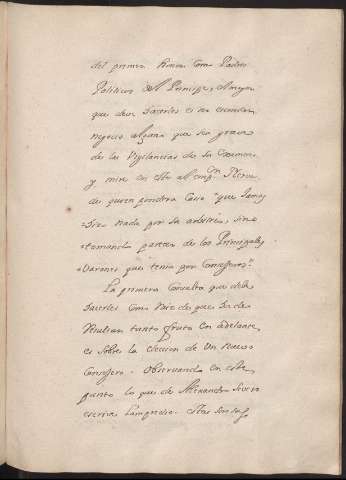 del primer Reino como Padres
Politicos del Principe, el mayor
que deve hacerles es no
negocio alguno que sea grave
de las Vigilancias de su
y mire en esto al emp.or Nerva
de quien pondera Casio "que jamas
hizo nada por su arbitrio, sino
tomando parecer de los Principales
Varones que tenia por Consejeros."
La primera Consulta que debe
hacerles como Raiz de que han de
Resultar tanto fruto en adelante
es sobre la eleccion de un nuevo
Consejero. Observando en este
punto lo que de Alexandro Severo
escrive Lampridio.